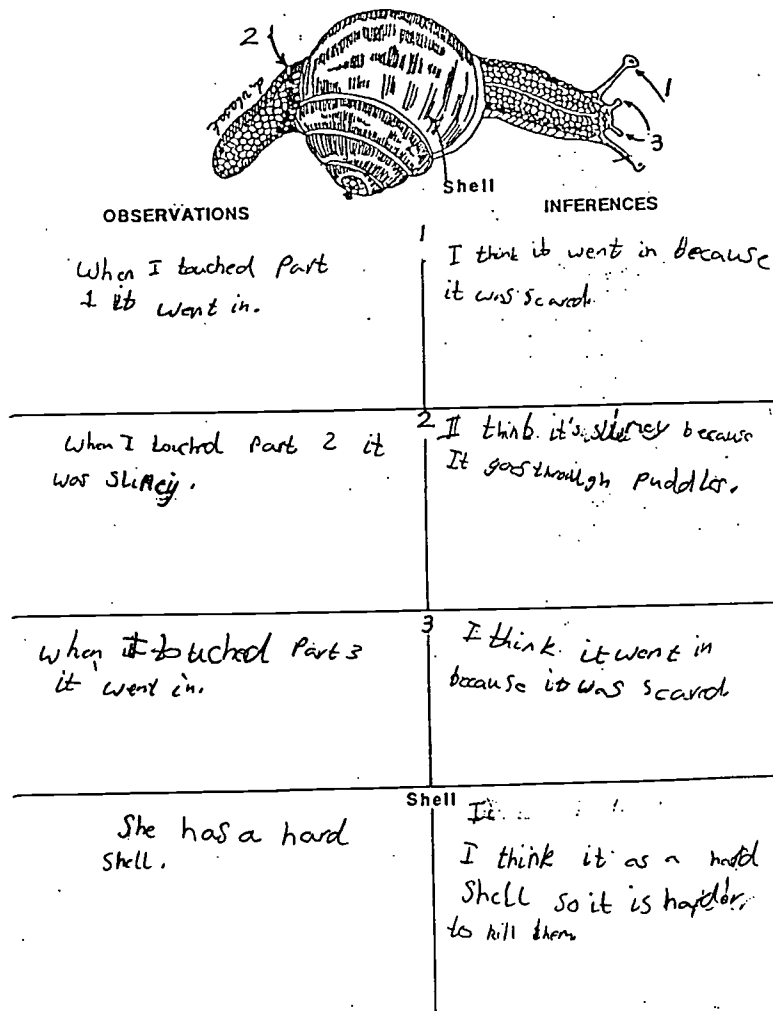 2
d. vlasak
1
3
Shell
OBSERVATIONS
INFERENCES
1
When I touched Part
1 it went in.
I think it went in because
it was scared.
2
When I touched Part 2 it
was Slimey.
I think it's slimey because
It goes through Puddles.
3
when it touched Part 3
it went in.
I think it went in
because it was scared.
Shell
She has a hard
Shell.
I think it as a hard
Shell so it is harder
to kill them.